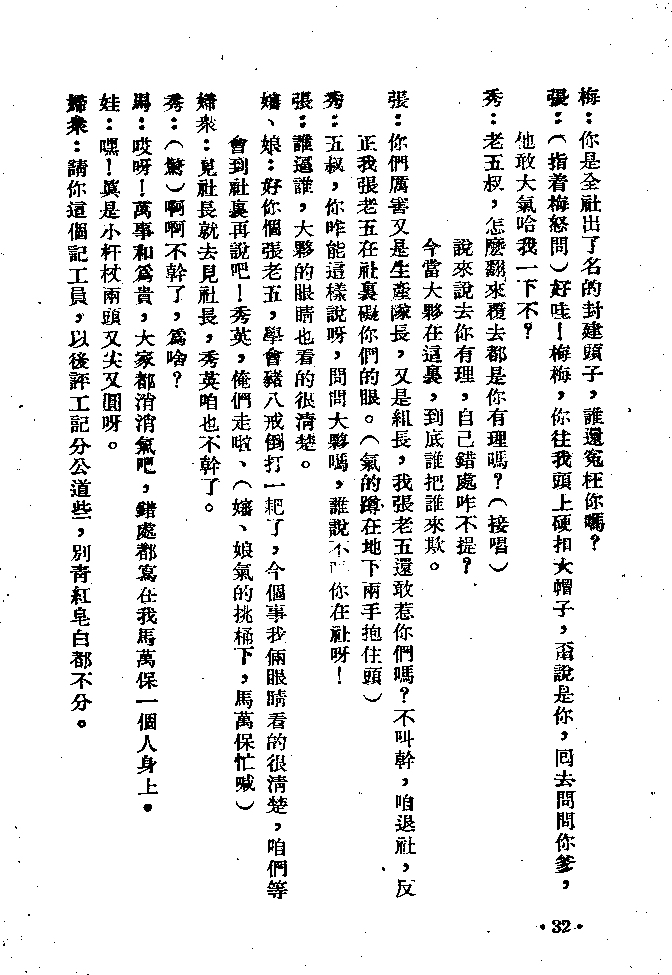 梅：你是全社出了名的封建頭子，誰還寃枉你嗎？
張：（指着梅怒問）好哇！梅梅，你往我頭上硬扣大帽子，甭說是你，回去問問你爹，
他敢大氣哈我一下不？
秀：老五叔，怎麼翻來覆去都是你有理嗎？（接唱）
說來說去你有理，自己錯處咋不提？
今當大夥在這裏，到底誰把誰來欺。
張：你們厲害又是生產隊長，又是組長，我張老五還敢惹你們嗎？不叫幹，咱退社，反
正我張老五在社裏礙你們的眼。（氣的蹲在地下兩手抱住頭）
秀：五叔，你咋能這樣說呀，問問大夥嗎，誰說不叫你在社呀！
張：誰逼誰，大夥的眼睛也看的很淸楚。
嬸、娘：好你個張老五，學會豬八戒倒打一耙了，今個事我倆眼睛看的很淸楚，咱們等
會到社裏再說吧！秀英，俺們走啦、（嬸、娘氣的挑桶下，馬萬保忙喊）
婦衆：見社長就去見社長，秀英咱也不幹了。
秀：（驚）啊啊不幹了，爲啥？
馬：哎呀！萬事和爲貴，大家都消消氣吧，錯處都寫在我馬萬保一個人身上。
娃：嘿！眞是小杆杖兩頭又尖又圓呀。
婦衆：請你這個記工員，以後評工記分公道些，別靑紅皂白都不分。
·32·